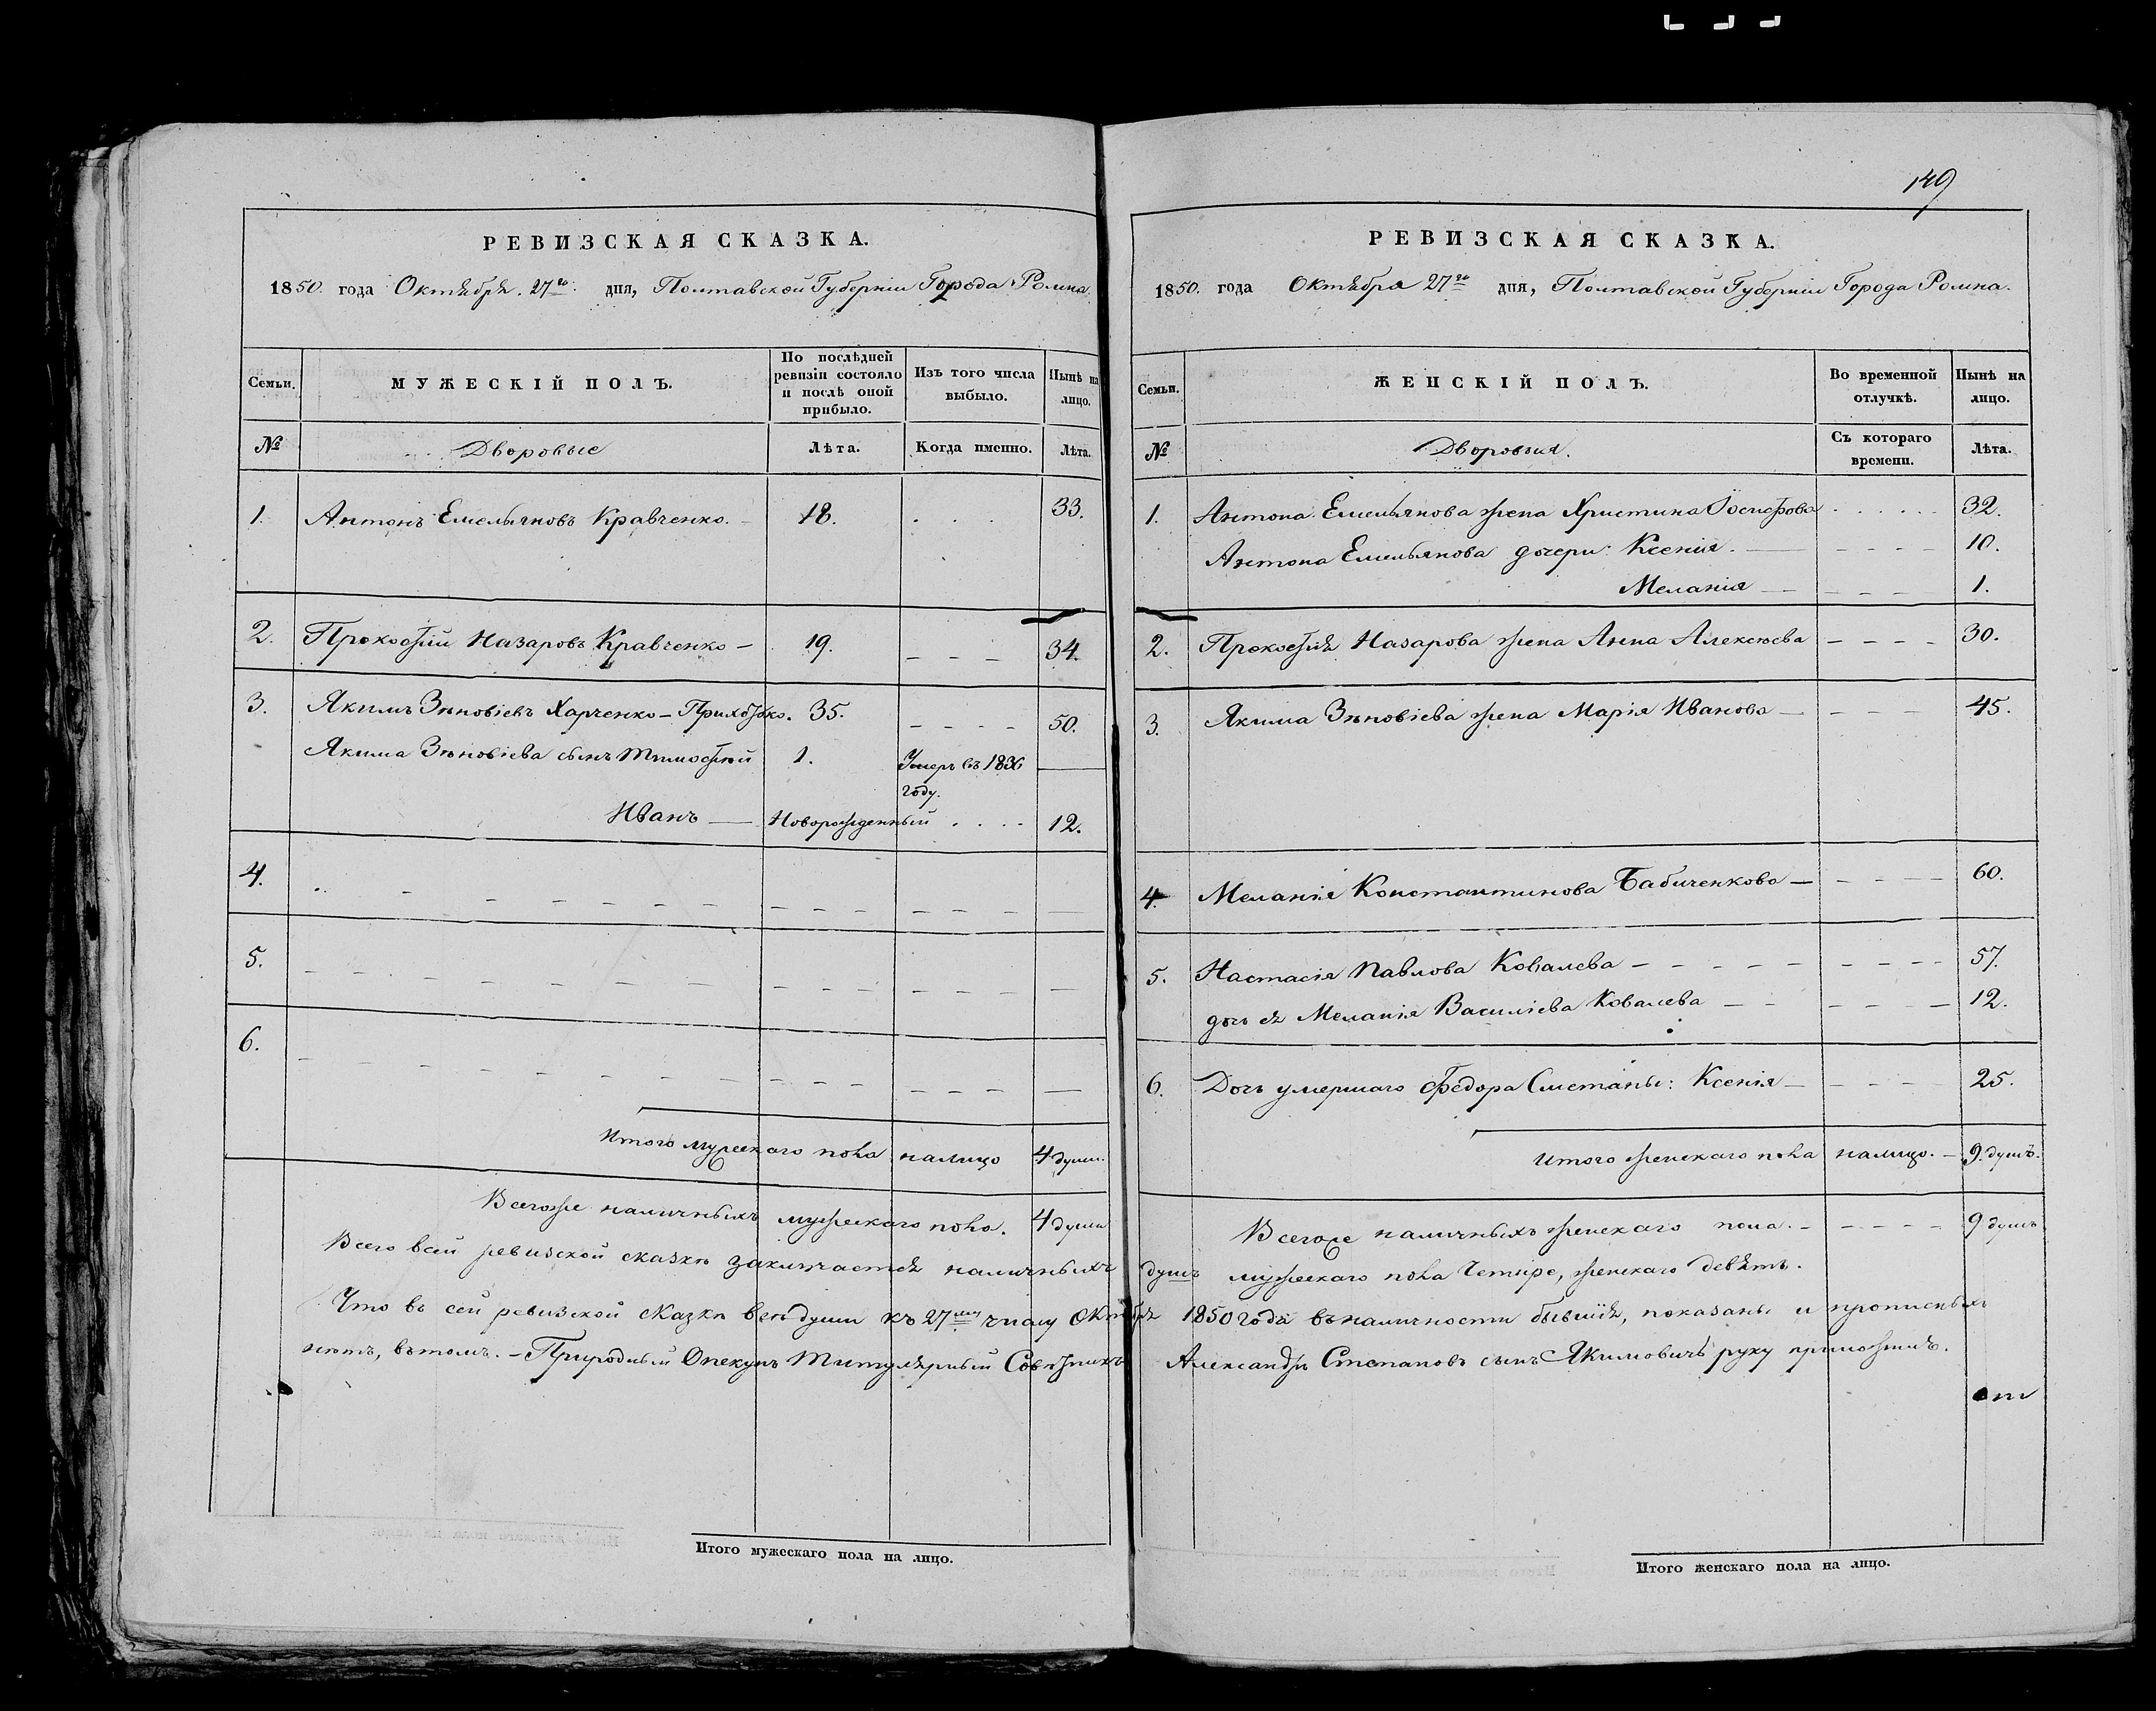 РЕВИЗСКАЯ СКАЗКА.
1850. года Октября. 27го. дня, Полтавской Губерніи Города Ромна.
Семьи. МУЖЕСКІЙ ПОЛЪ. По послѣдней ревизіи состояло и послѣ оной прибыло. Изъ того числа выбыло. Нынѣ на лицо.
№ Дворовые Лѣта. Когда именно. Лѣта.
1. Антонъ Емельяновъ Кравченко. 18. . . . 33.
2. Прокофій Назаровъ Кравченко – 19. – – – 34.
3. Якимъ Зѣновіевъ Харченко – Приходько. 35. – – – – 50.
Якима Зѣновіева сынъ Тимофѣй 1. Умеръ въ 1836 году. —
Иванъ — Новорожденный . . . . 12.
4.
5.
6.
Итого мужескаго пола налицо 4 души.
Всегоже наличныхъ мужескаго пола. 4 души
Всего въ сей ревизской сказкѣ заключается наличныхъ
Что въ сей ревизской сказкѣ всѣ души къ 27му числу Октября
нѣтъ, въ томъ. – Природный Опекунъ Титулярный Совѣтникъ
Итого мужескаго пола на лицо.
149
РЕВИЗСКАЯ СКАЗКА.
1850. года Октября 27го дня, Полтавской Губерніи Города Ромна.
Семьи. ЖЕНСКІЙ ПОЛЪ. Во временной отлучкѣ. Нынѣ на лицо.
№ Дворовыя. Съ котораго времени. Лѣта.
1. Антона Емельянова жена Христина Іосифова . . . . . . 32.
Антона Емельянова дочери: Ксенія. — – – – – 10.
Меланія — – – – – 1.
2. Прокофія Назарова жена Анна Алексѣева – – – – 30.
3. Якима Зѣновіева жена Марія Иванова — – – – 45.
4. Меланія Константинова Бабиченкова — – – – – 60.
5. Настасія Павлова Ковалева – – – – – – – – – 57.
дочь ея Меланія Василіева Ковалева – – – – – – 12.
6. Дочь умершаго Федора Сметаны: Ксенія – – – – – 25.
Итого женскаго пола налицо. – 9. душъ.
Всегоже наличныхъ женскаго пола. – – – – – 9 душъ
душъ мужескаго пола Четыре, женскаго девять.
1850 года въ наличности бывшія, показаны и прописныхъ
Александръ Степановъ сынъ Якимовичъ руку приложилъ.
Итого женскаго пола на лицо.